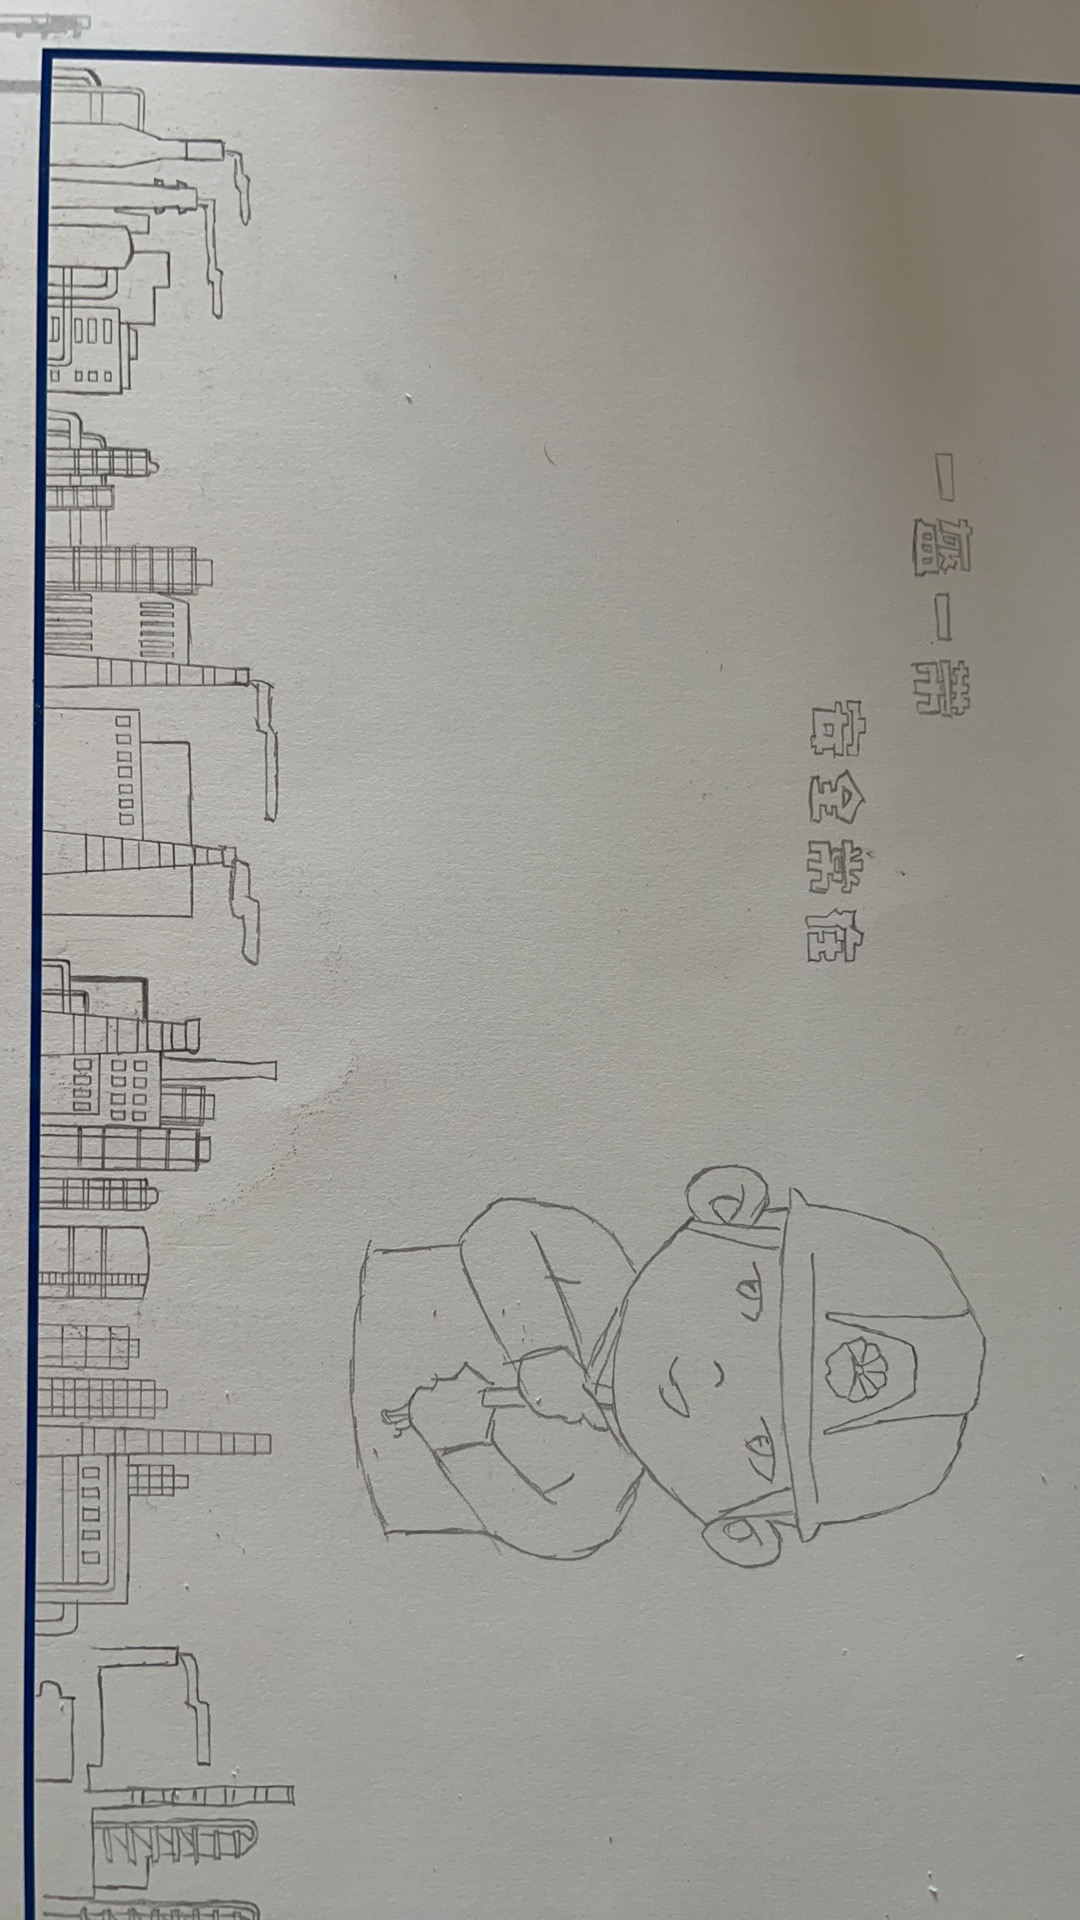 一盔一带
安全常在